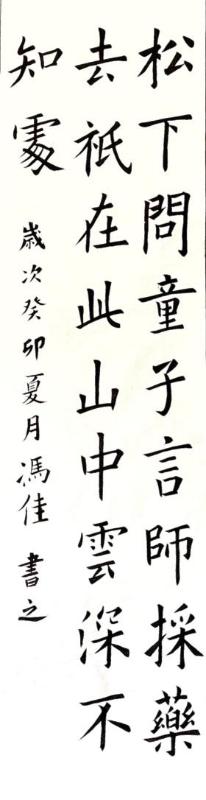 松下問童子言師採藥
去祇在此山中雲深不
知處
歲次癸卯夏月馮佳書之